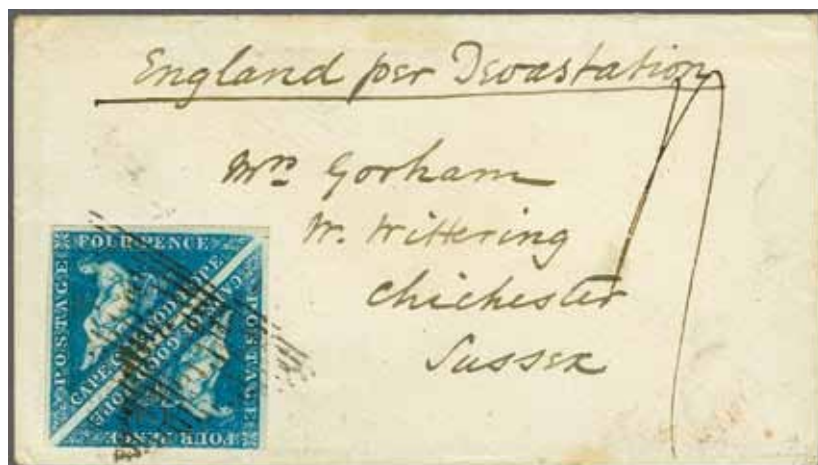 England per Devastation
Mrs Gorham
W. Wittering
Chichester
Sussex
FOUR PENCE
POSTAGE
CAPE OF GOOD HOPE
CAPE OF GOOD HOPE
POSTAGE
FOUR PENCE